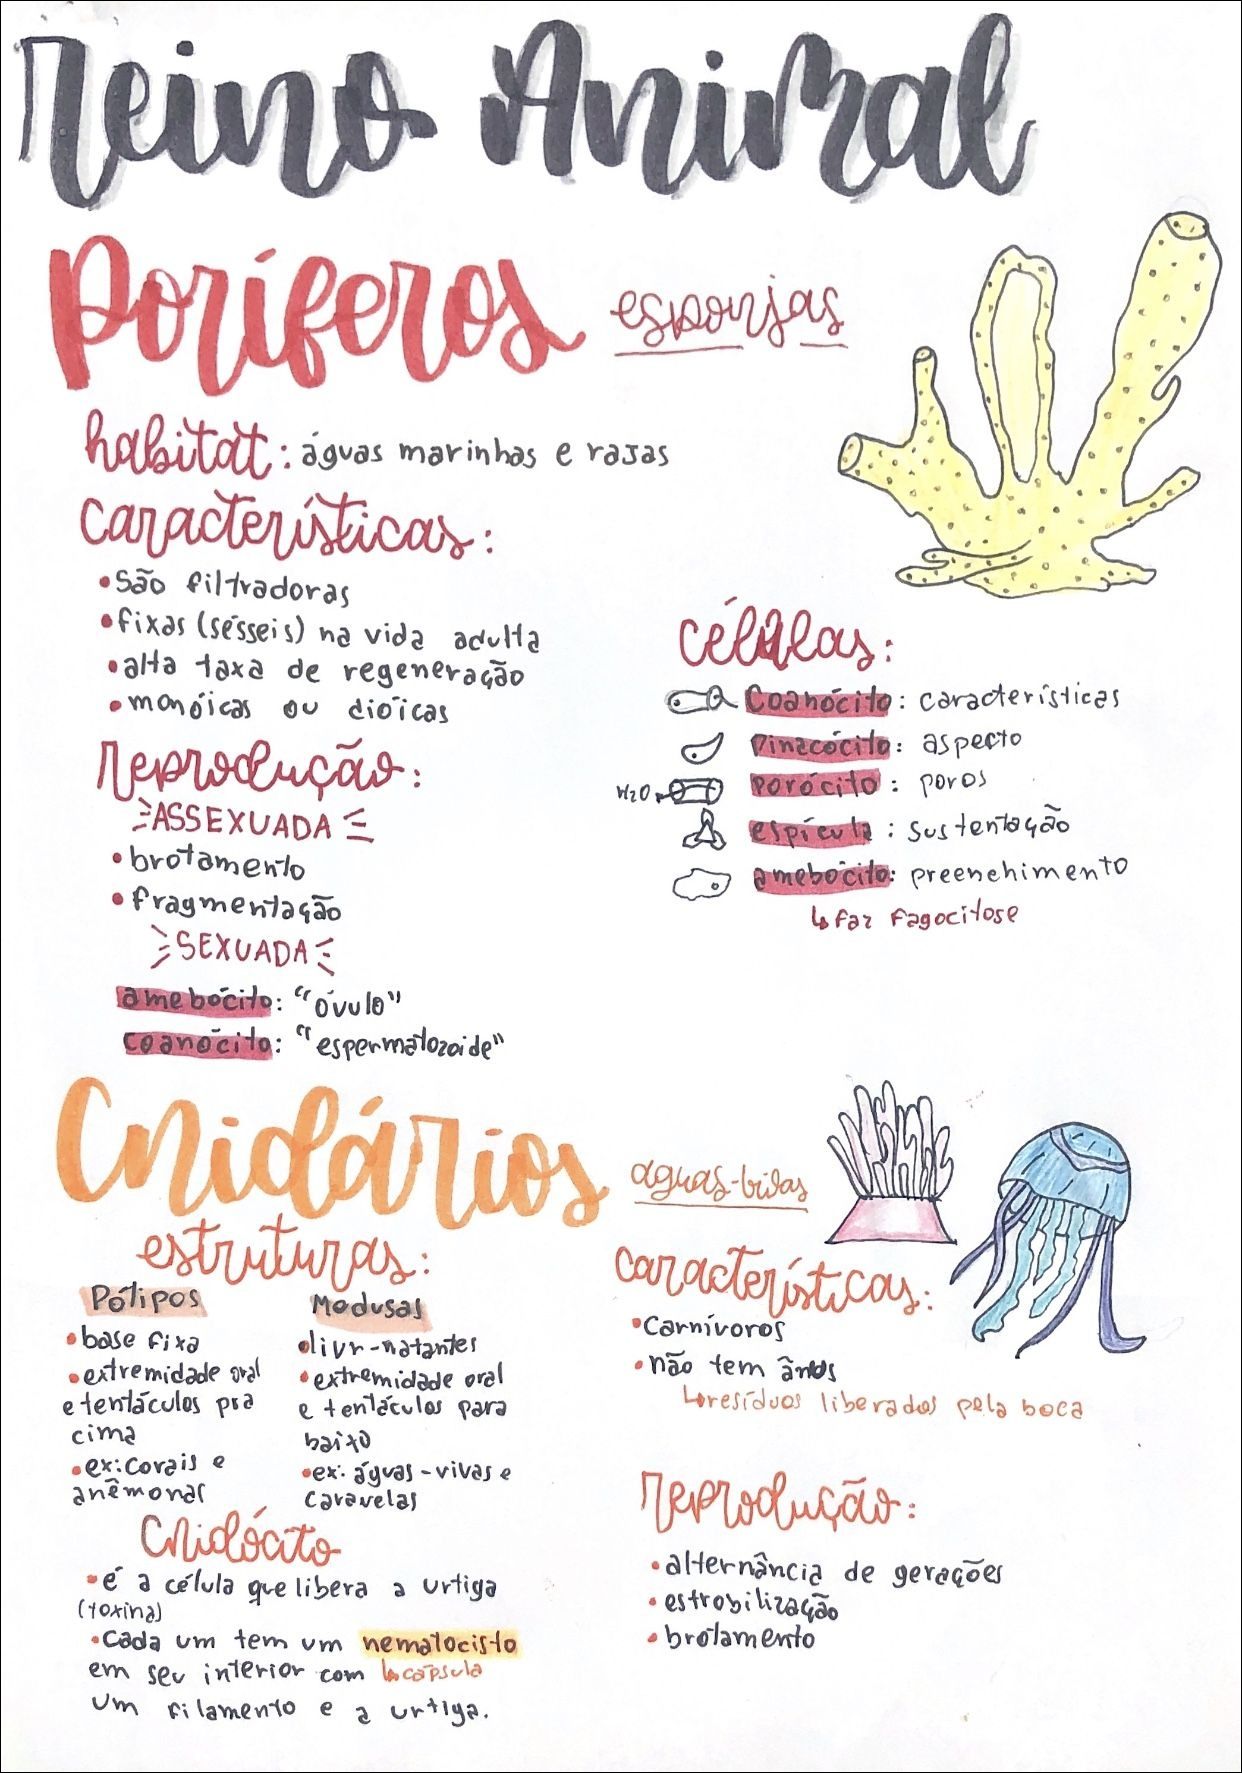 Reino Animal
Poríferos esponjas
habitat: águas marinhas e rasas
Características:
•São filtradoras
•fixas (sésseis) na vida adulta
•alta taxa de regeneração
•monóicas ou dióicas
reprodução:
ASSEXUADA
•brotamento
•fragmentação
SEXUADA
amebócito: "óvulo"
coanócito: "espermatozoide"
Células:
Coanócito: características
Pinacócito: aspecto
H2O
porócito: poros
espícula: sustentação
amebócito: preenchimento
↳faz fagocitose
Cnidários
águas-vivas
estruturas:
Pólipos
•base fixa
•extremidade oral
e tentáculos pra
cima
•ex: corais e
anêmonas
Medusas
•livr-natantes
•extremidade oral
e tentáculos para
baixo
•ex: águas-vivas e
caravelas
Cnidócito
•é a célula que libera a urtiga
(toxina)
•Cada um tem um nematocisto
em seu interior com ↳cápsula
um filamento e a urtiga.
características:
•Carnívoros
•não tem ânus
↳resíduos liberados pela boca
reprodução:
•alternância de gerações
•estrobilização
•brotamento